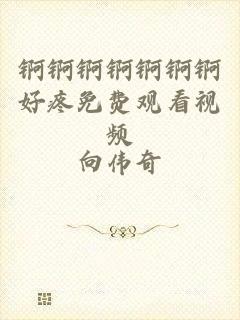 锕锕锕锕锕锕锕
好疼免费观看视
频
向伟奇